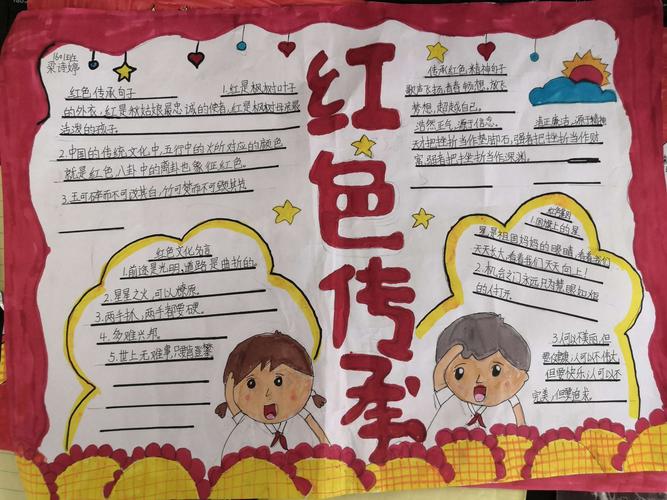 梁诗婷
红色传承句子
1.红是枫树对叶子
的外衣,红是秋姑娘最忠诚的使者,红是枫树母亲最
活泼的孩子。
2.中国的传统文化中,五行中的火所对应的颜色
就是红色,八卦中的离卦也象征红色。
3.玉可碎而不可改其白,竹可焚而不可毁其节
红色文化名言
1.前途是光明,道路是曲折的。
2.星星之火,可以燎原。
3.两手抓,两手都要硬。
4.多难兴邦。
5.世上无难事,只要肯登攀
红色传承
传承红色,精神句子
歌声飞扬,青春畅想,放飞
梦想,超越自己。
浩然正气,源于信念。
清正廉洁,源于精神
天才把挫折当作垫脚石,强者把挫折当作财
富,弱者把挫折当作深渊。
1.国旗上的星
星是祖国妈妈的眼睛,看着我们
天天长大,看着我们天天向上!
2.机会之门永远只为慧眼如炬
的人打开。
3.人可以不美丽,但
要健康,人可以不伟大,
但要快乐,人可以不
完美,但要追求。